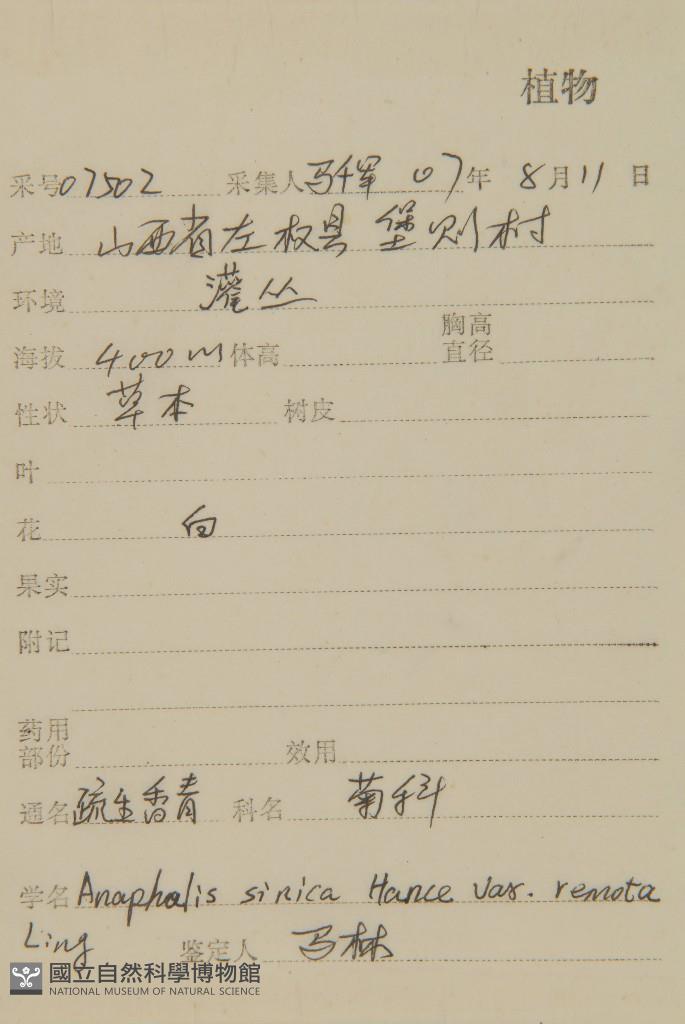 植物
采号07502 采集人马千军 07年 8月11日
产地 山西省左权县堡则村
环境 灌丛
海拔 400m 体高 胸高直径
性状 草本 树皮
叶
花 白
果实
附记
药用部份 效用
通名 疏生香青 科名 菊科
学名 Anaphalis sinica Hance var. remota
Ling 鉴定人 马林
國立自然科學博物館
NATIONAL MUSEUM OF NATURAL SCIENCE